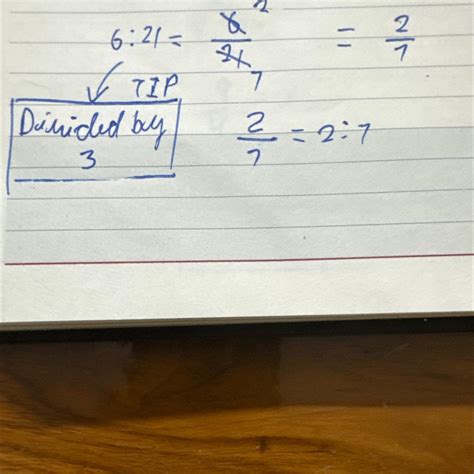 6:21 = 6/21 2 7 = 2/7
TIP
Divided by
3
2/7 = 2:7